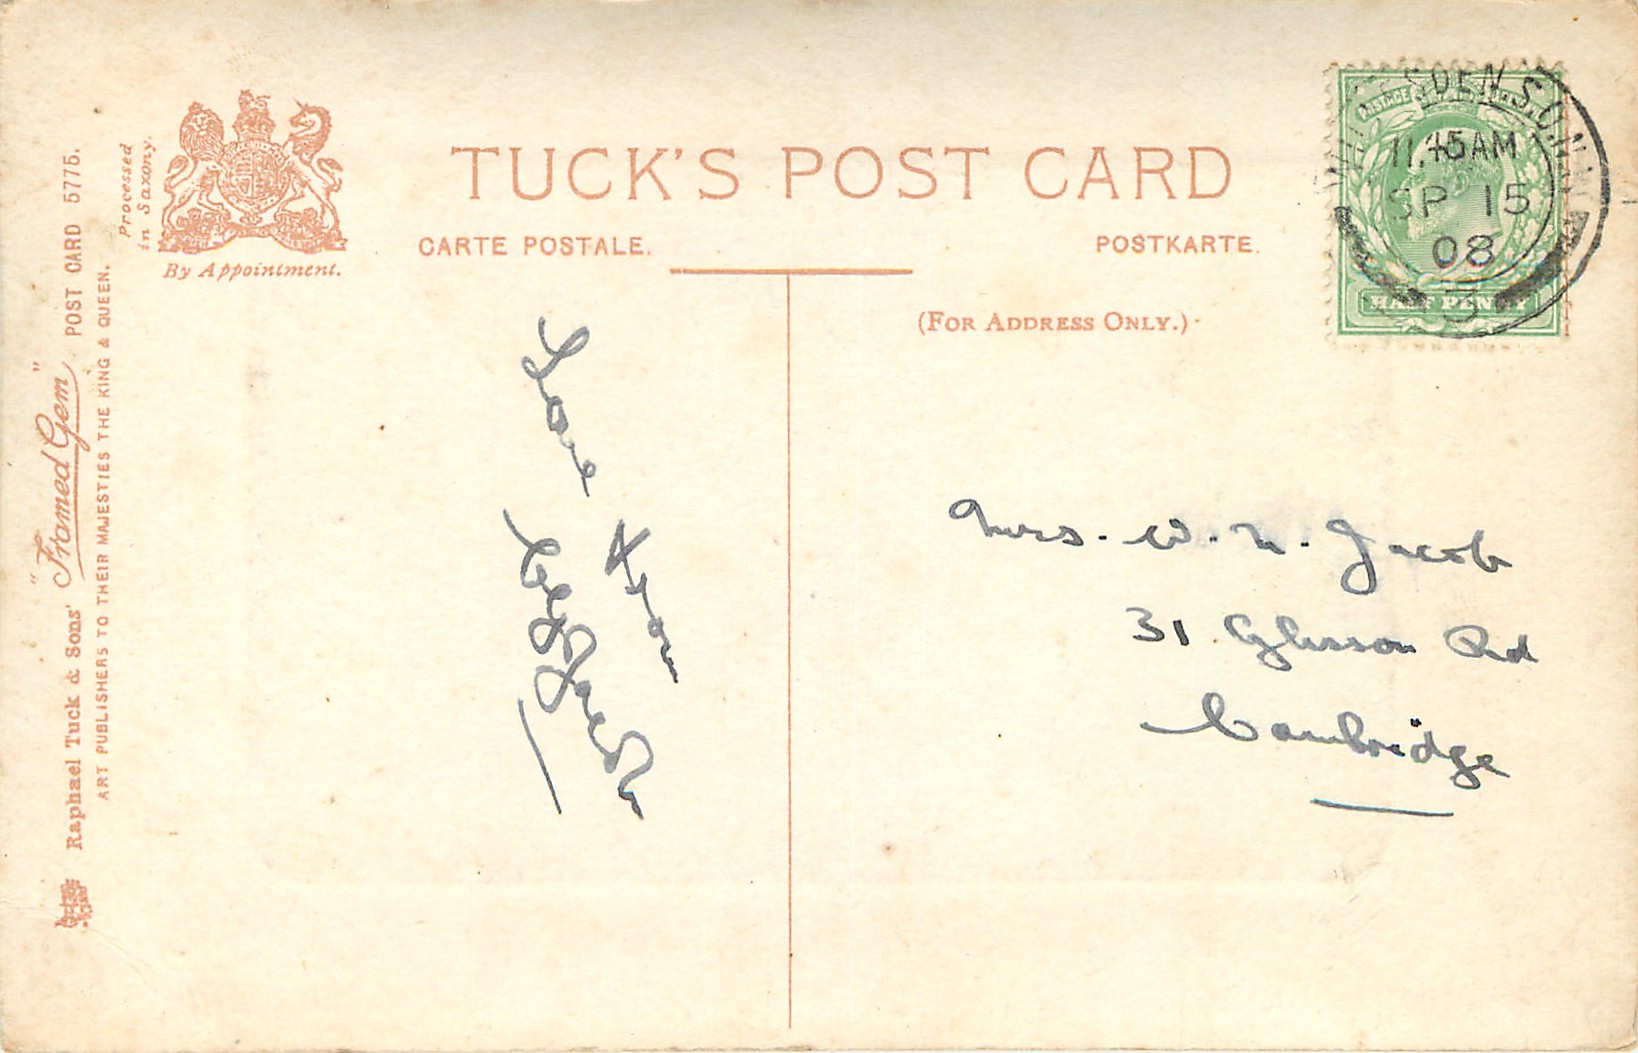 TUCK'S POST CARD
CARTE POSTALE.
POSTKARTE.
(FOR ADDRESS ONLY.)
Processed
in Saxony.
By Appointment.
Raphael Tuck & Sons' "Framed Gem" POST CARD 5775.
ART PUBLISHERS TO THEIR MAJESTIES THE KING & QUEEN.
POSTAGE
HALF PENNY
SDEN S.O.N.W
11.45AM
SP 15
08
Love from
Mrs. W. N. Jacob
31 Glisson Rd
Cambridge